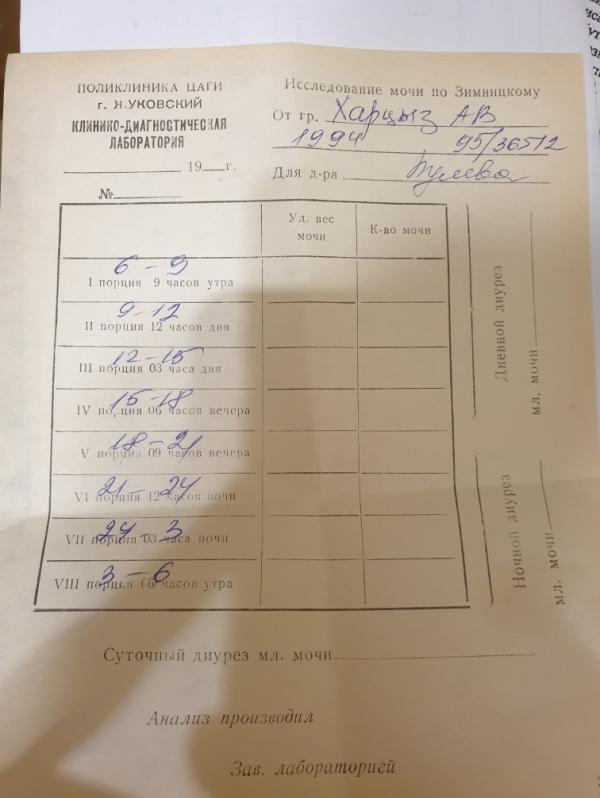 ПОЛИКЛИНИКА ЦАГИ
г. Ж УКОВСКИЙ
КЛИНИКО-ДИАГНОСТИЧЕСКАЯ
ЛАБОРАТОРИЯ
19 г.
№
Исследование мочи по Зимницкому
От гр. Харцыз АВ
1994 95/36512
Для д-ра
Уд. вес мочи
К-во мочи
6 - 9
I порция 9 часов утра
9-12
II порция 12 часов дня
12-15
III порция 03 часа дня
15-18
IV порция 06 часов вечера
18-21
V порция 09 часов вечера
21-24
VI порция 12 часов ночи
24-3
VII порция 03 часа ночи
3-6
VIII порция 06 часов утра
Дневной диурез
мл. мочи
Ночной диурез
мл. мочи
Суточный диурез мл. мочи
Анализ производил
Зав. лабораторией